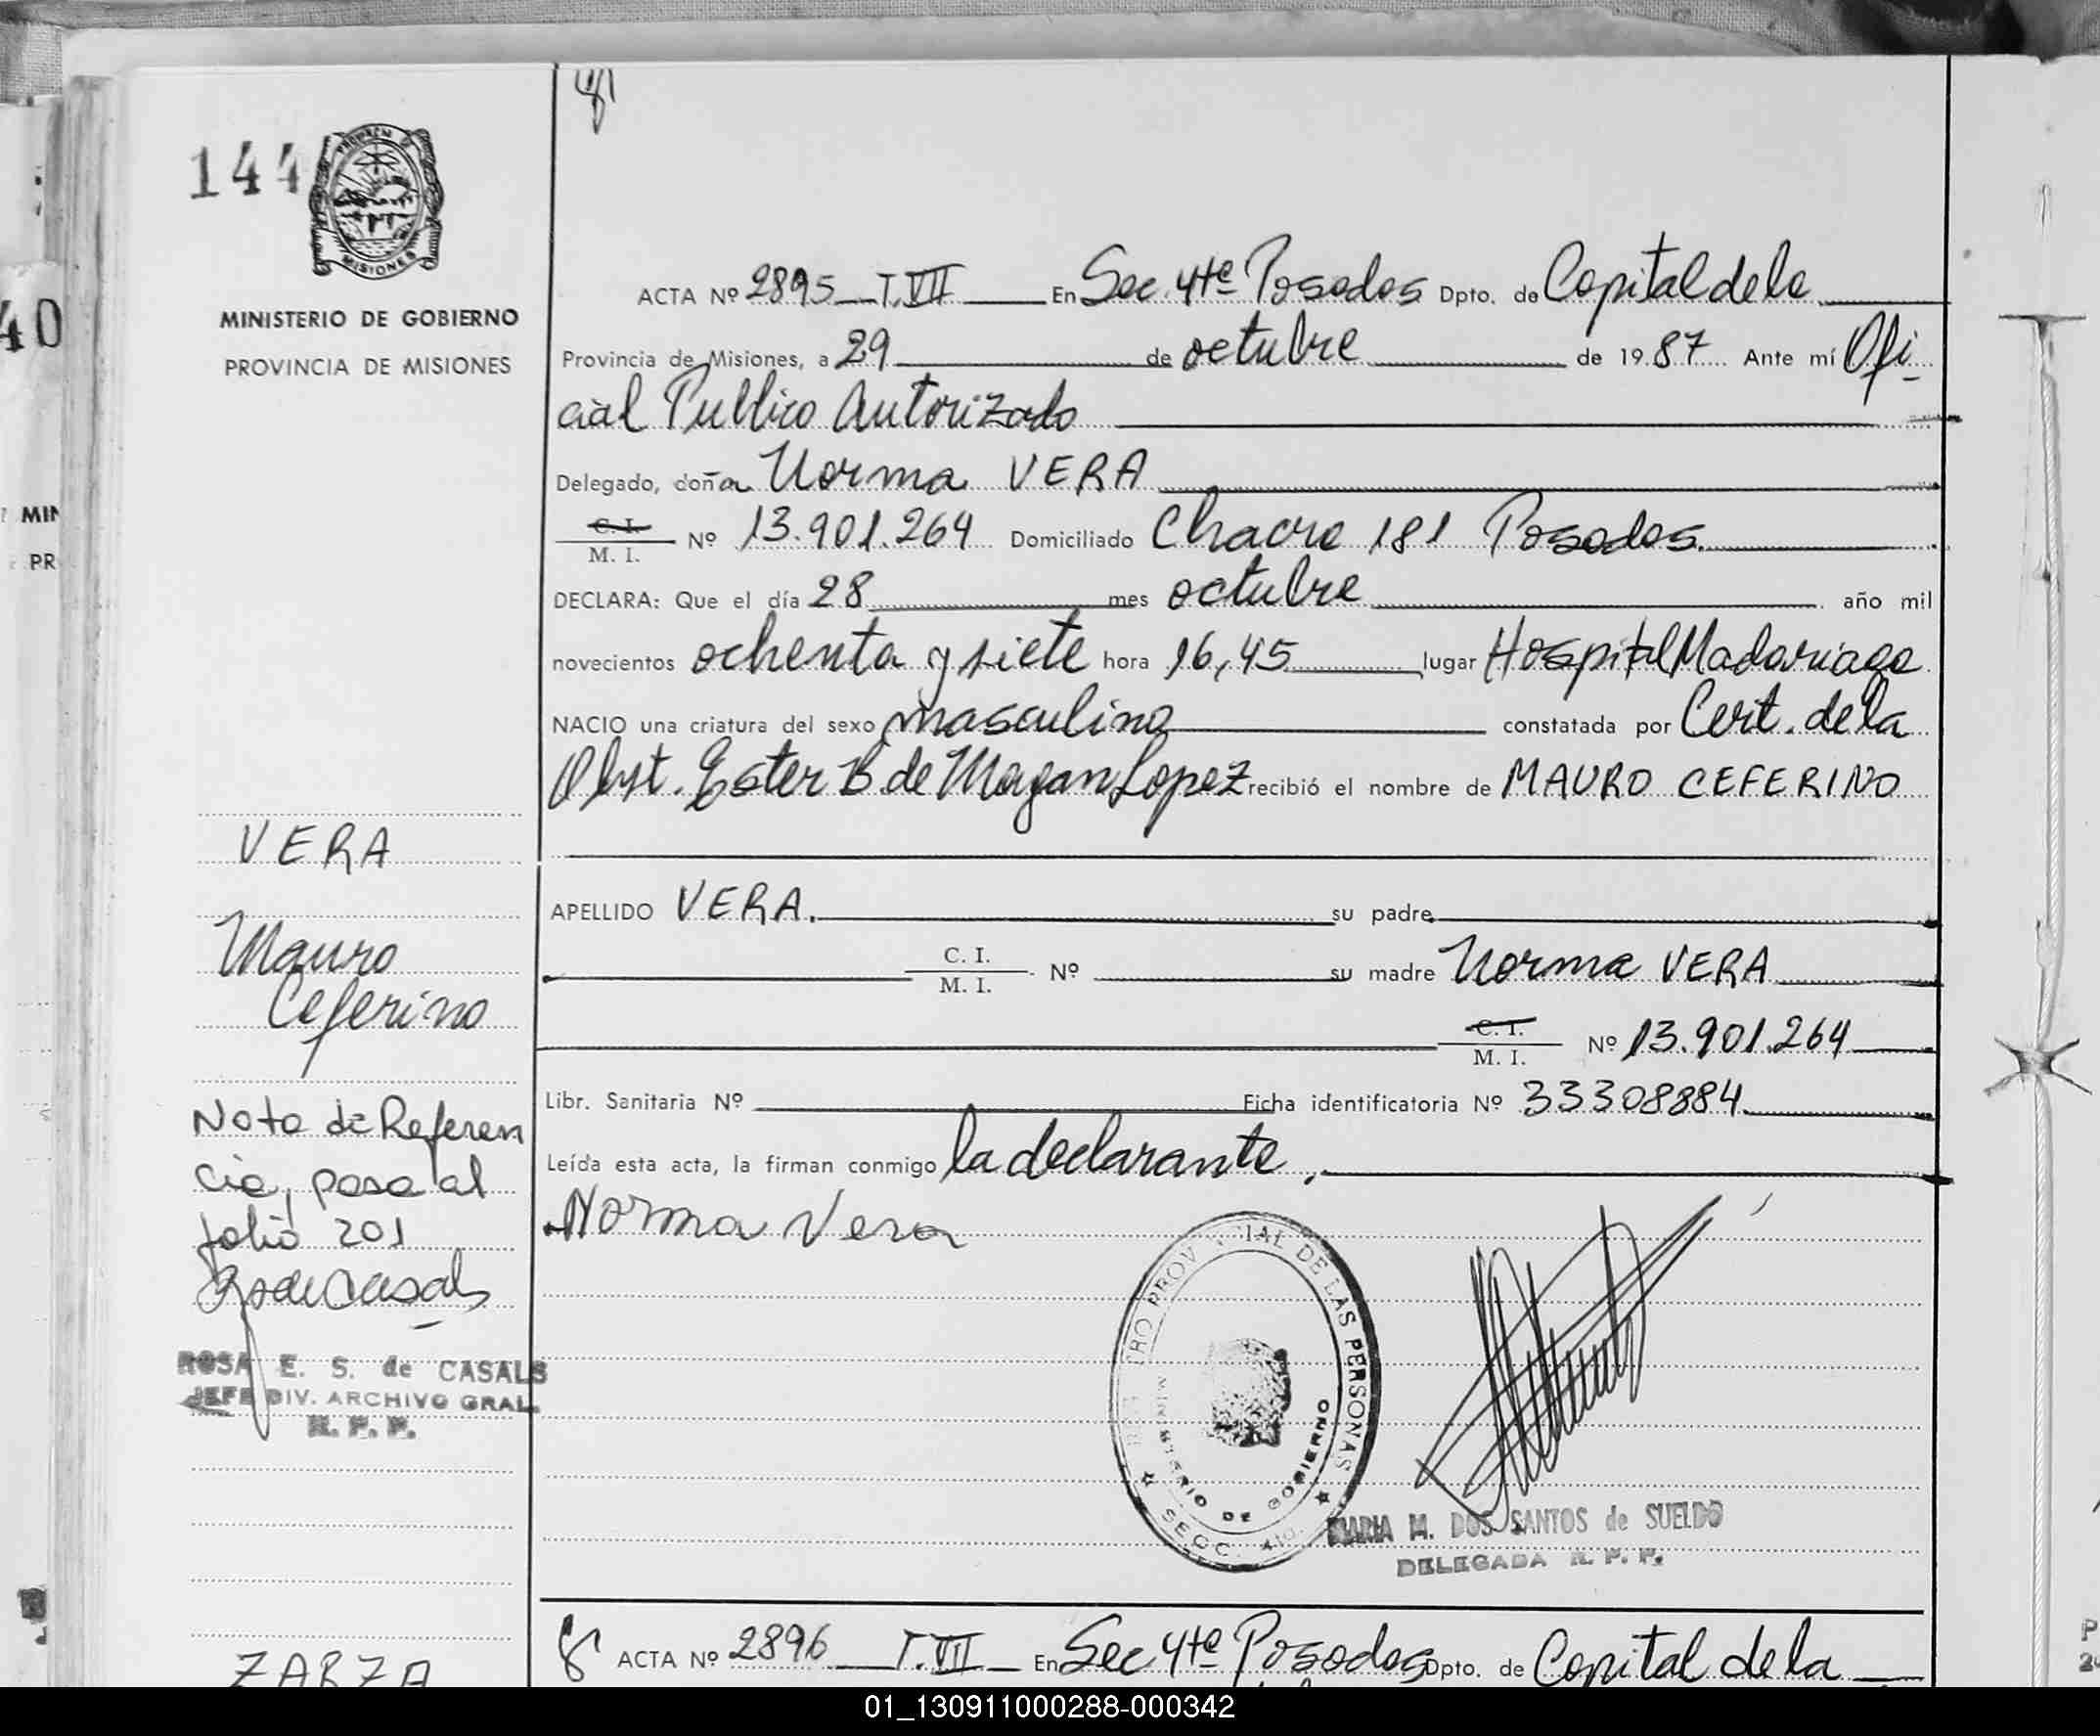 144
PROVINCIA
MISIONES
MINISTERIO DE GOBIERNO
PROVINCIA DE MISIONES
ACTA Nº 2895 T. VII En Sec. 4ta Posadas Dpto. de Capital de la
Provincia de Misiones, a 29 de octubre de 1987 Ante mí Ofi-
cial Publico Autorizado
Delegado, doña Norma VERA
C. I.
M. I. Nº 13.901.264 Domiciliado Chacra 181 Posadas
DECLARA: Que el día 28 mes octubre año mil
novecientos ochenta y siete hora 16,45 lugar Hospital Madariaga
NACIO una criatura del sexo masculino constatada por Cert. de la
Obst. Ester B de Magan Lopez recibió el nombre de MAURO CEFERINO
APELLIDO VERA. su padre
C. I.
M. I. Nº su madre Norma VERA
C. I.
M. I. Nº 13.901.264
Libr. Sanitaria Nº Ficha identificatoria Nº 33308884
Leída esta acta, la firman conmigo la declarante,
Norma Vera
VERA
Mauro
Ceferino
Nota de Referen
cia, pasa al
folio 201
ROSA E. S. de CASALS
JEFE DIV. ARCHIVO GRAL.
R. P. P.
PROVINCIAL DE LAS PERSONAS
MINISTERIO DE GOBIERNO
SECC. 4ta.
MARIA M. DOS SANTOS de SUELDO
DELEGADA R. P. P.
ZARZA
ACTA Nº 2896 T. VII En Sec 4ta Posadas Dpto. de Capital de la
40
MIN
PR
01_130911000288-000342